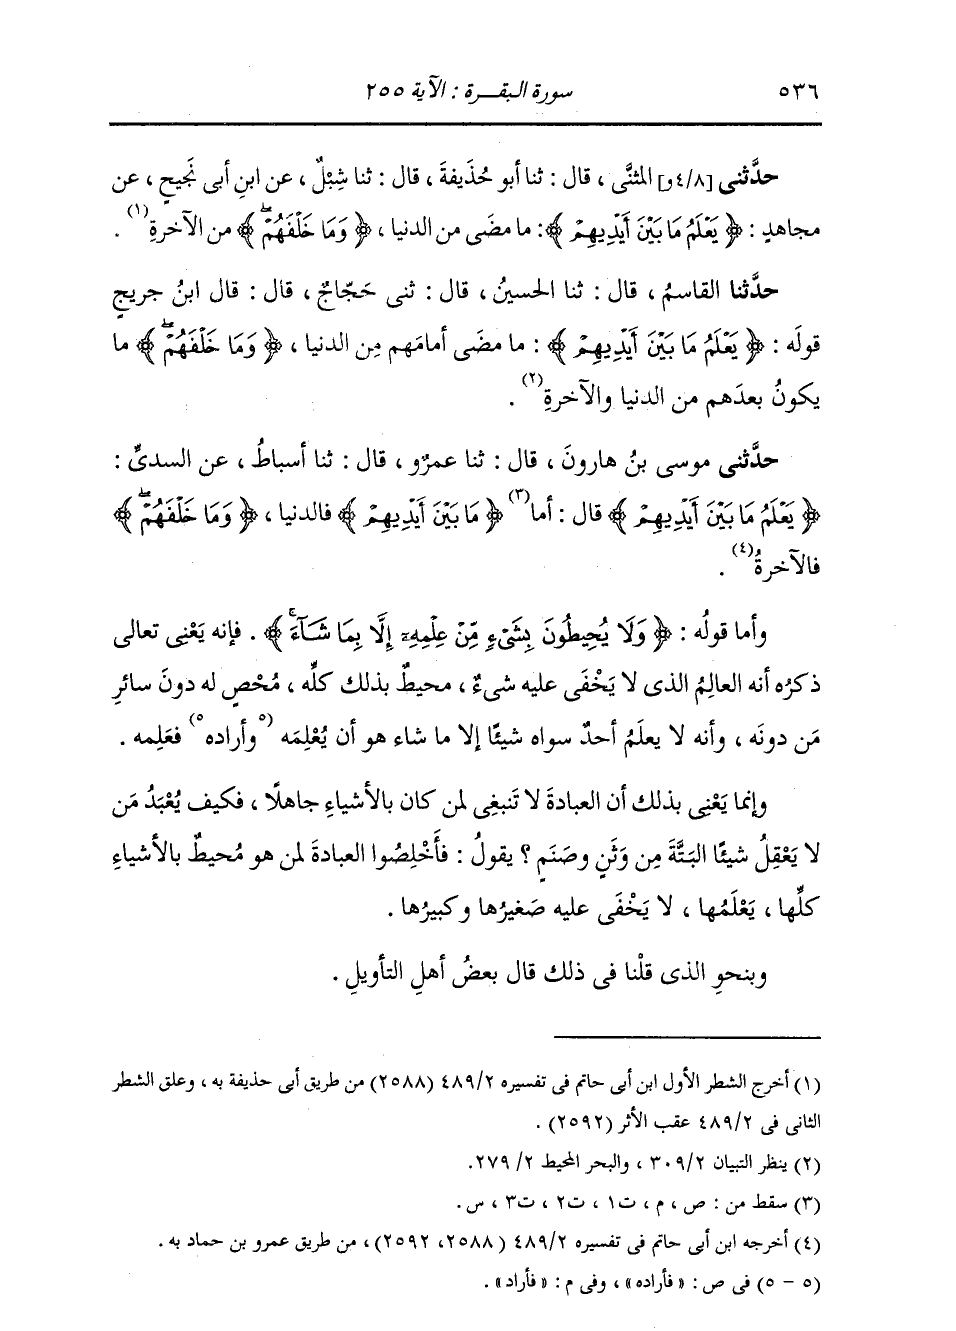 ٥٣٦ سورة البقـــرة : الآية ٢٥٥
حدَّثنى [٤/٨و] المثنَّى ، قال : ثنا أبو حُذَيفةَ ، قال : ثنا شِبْلٌ ، عن ابنِ أبى نَجيحٍ ، عن
مجاهدٍ : ﴿ يَعْلَمُ مَا بَيْنَ أَيْدِيهِمْ ﴾ : ما مضَى من الدنيا ، ﴿ وَمَا خَلْفَهُمْۖ ﴾ من الآخرةِ(١) .
حدَّثنا القاسمُ ، قال : ثنا الحسينُ ، قال : ثنى حَجّاجٌ ، قال : قال ابنُ جريجٍ
قولَه : ﴿ يَعْلَمُ مَا بَيْنَ أَيْدِيهِمْ ﴾ : ما مضَى أمامَهم مِن الدنيا ، ﴿ وَمَا خَلْفَهُمْۖ ﴾ ما
يكونُ بعدَهم من الدنيا والآخرةِ(٢) .
حدَّثنى موسى بنُ هارونَ ، قال : ثنا عمرٌو ، قال : ثنا أسباطُ ، عن السدىِّ :
﴿ يَعْلَمُ مَا بَيْنَ أَيْدِيهِمْ ﴾ قال : أما(٣) ﴿ مَا بَيْنَ أَيْدِيهِمْ ﴾ فالدنيا ، ﴿ وَمَا خَلْفَهُمْۖ ﴾
فالآخرةُ(٤) .
وأما قولُه : ﴿ وَلَا يُحِيطُونَ بِشَىْءٍ مِّنْ عِلْمِهِۦٓ إِلَّا بِمَا شَآءَۚ ﴾ . فإنه يَعْنِى تعالى
ذكرُه أنه العالِمُ الذى لا يَخْفَى عليه شىءٌ ، محيطٌ بذلك كلِّه ، مُحْصٍ له دونَ سائرِ
مَن دونَه ، وأنه لا يعلَمُ أحدٌ سواه شيئًا إلا ما شاء هو أن يُعْلِمَه (٥وأراده٥) فعَلِمه .
وإنما يَعْنِى بذلك أن العبادةَ لا تَنبغِى لمن كان بالأشياءِ جاهلًا ، فكيف يُعْبَدُ مَن
لا يَعْقِلُ شيئًا البَتَّةَ مِن وَثَنٍ وصَنَمٍ ؟ يقولُ : فأَخْلِصُوا العبادةَ لمن هو مُحيطٌ بالأشياءِ
كلِّها ، يَعْلَمُها ، لا يَخْفَى عليه صَغيرُها وكبيرُها .
وبنحوِ الذى قلْنا فى ذلك قال بعضُ أهلِ التأويلِ .
(١) أخرج الشطر الأول ابن أبى حاتم فى تفسيره ٤٨٩/٢ (٢٥٨٨) من طريق أبى حذيفة به ، وعلق الشطر
الثانى فى ٤٨٩/٢ عقب الأثر (٢٥٩٢) .
(٢) ينظر التبيان ٣٠٩/٢ ، والبحر المحيط ٢/ ٢٧٩.
(٣) سقط من : ص ، م ، ت١ ، ت٢ ، ت٣ ، س.
(٤) أخرجه ابن أبى حاتم فى تفسيره ٤٨٩/٢ (٢٥٨٨، ٢٥٩٢) ، من طريق عمرو بن حماد به .
(٥ - ٥) فى ص : « فأراده» ، وفى م : « فأراد» .